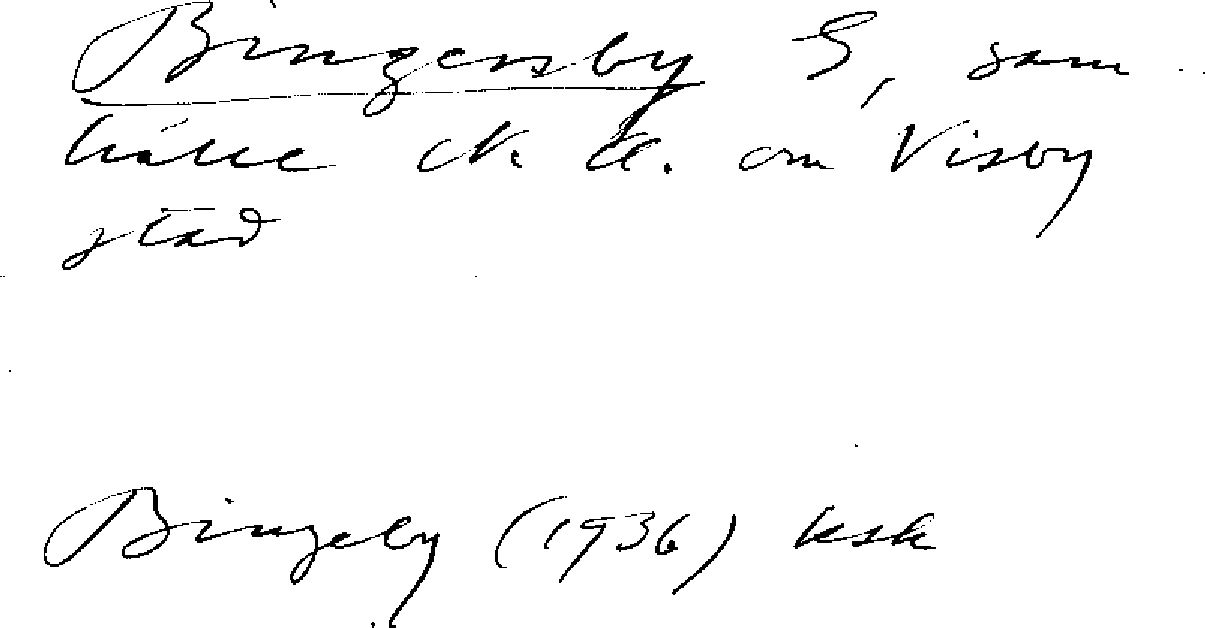 Bingersby S, sam-
hälle N. Ö. om Visby
stad
Bingeby (1936) ksk